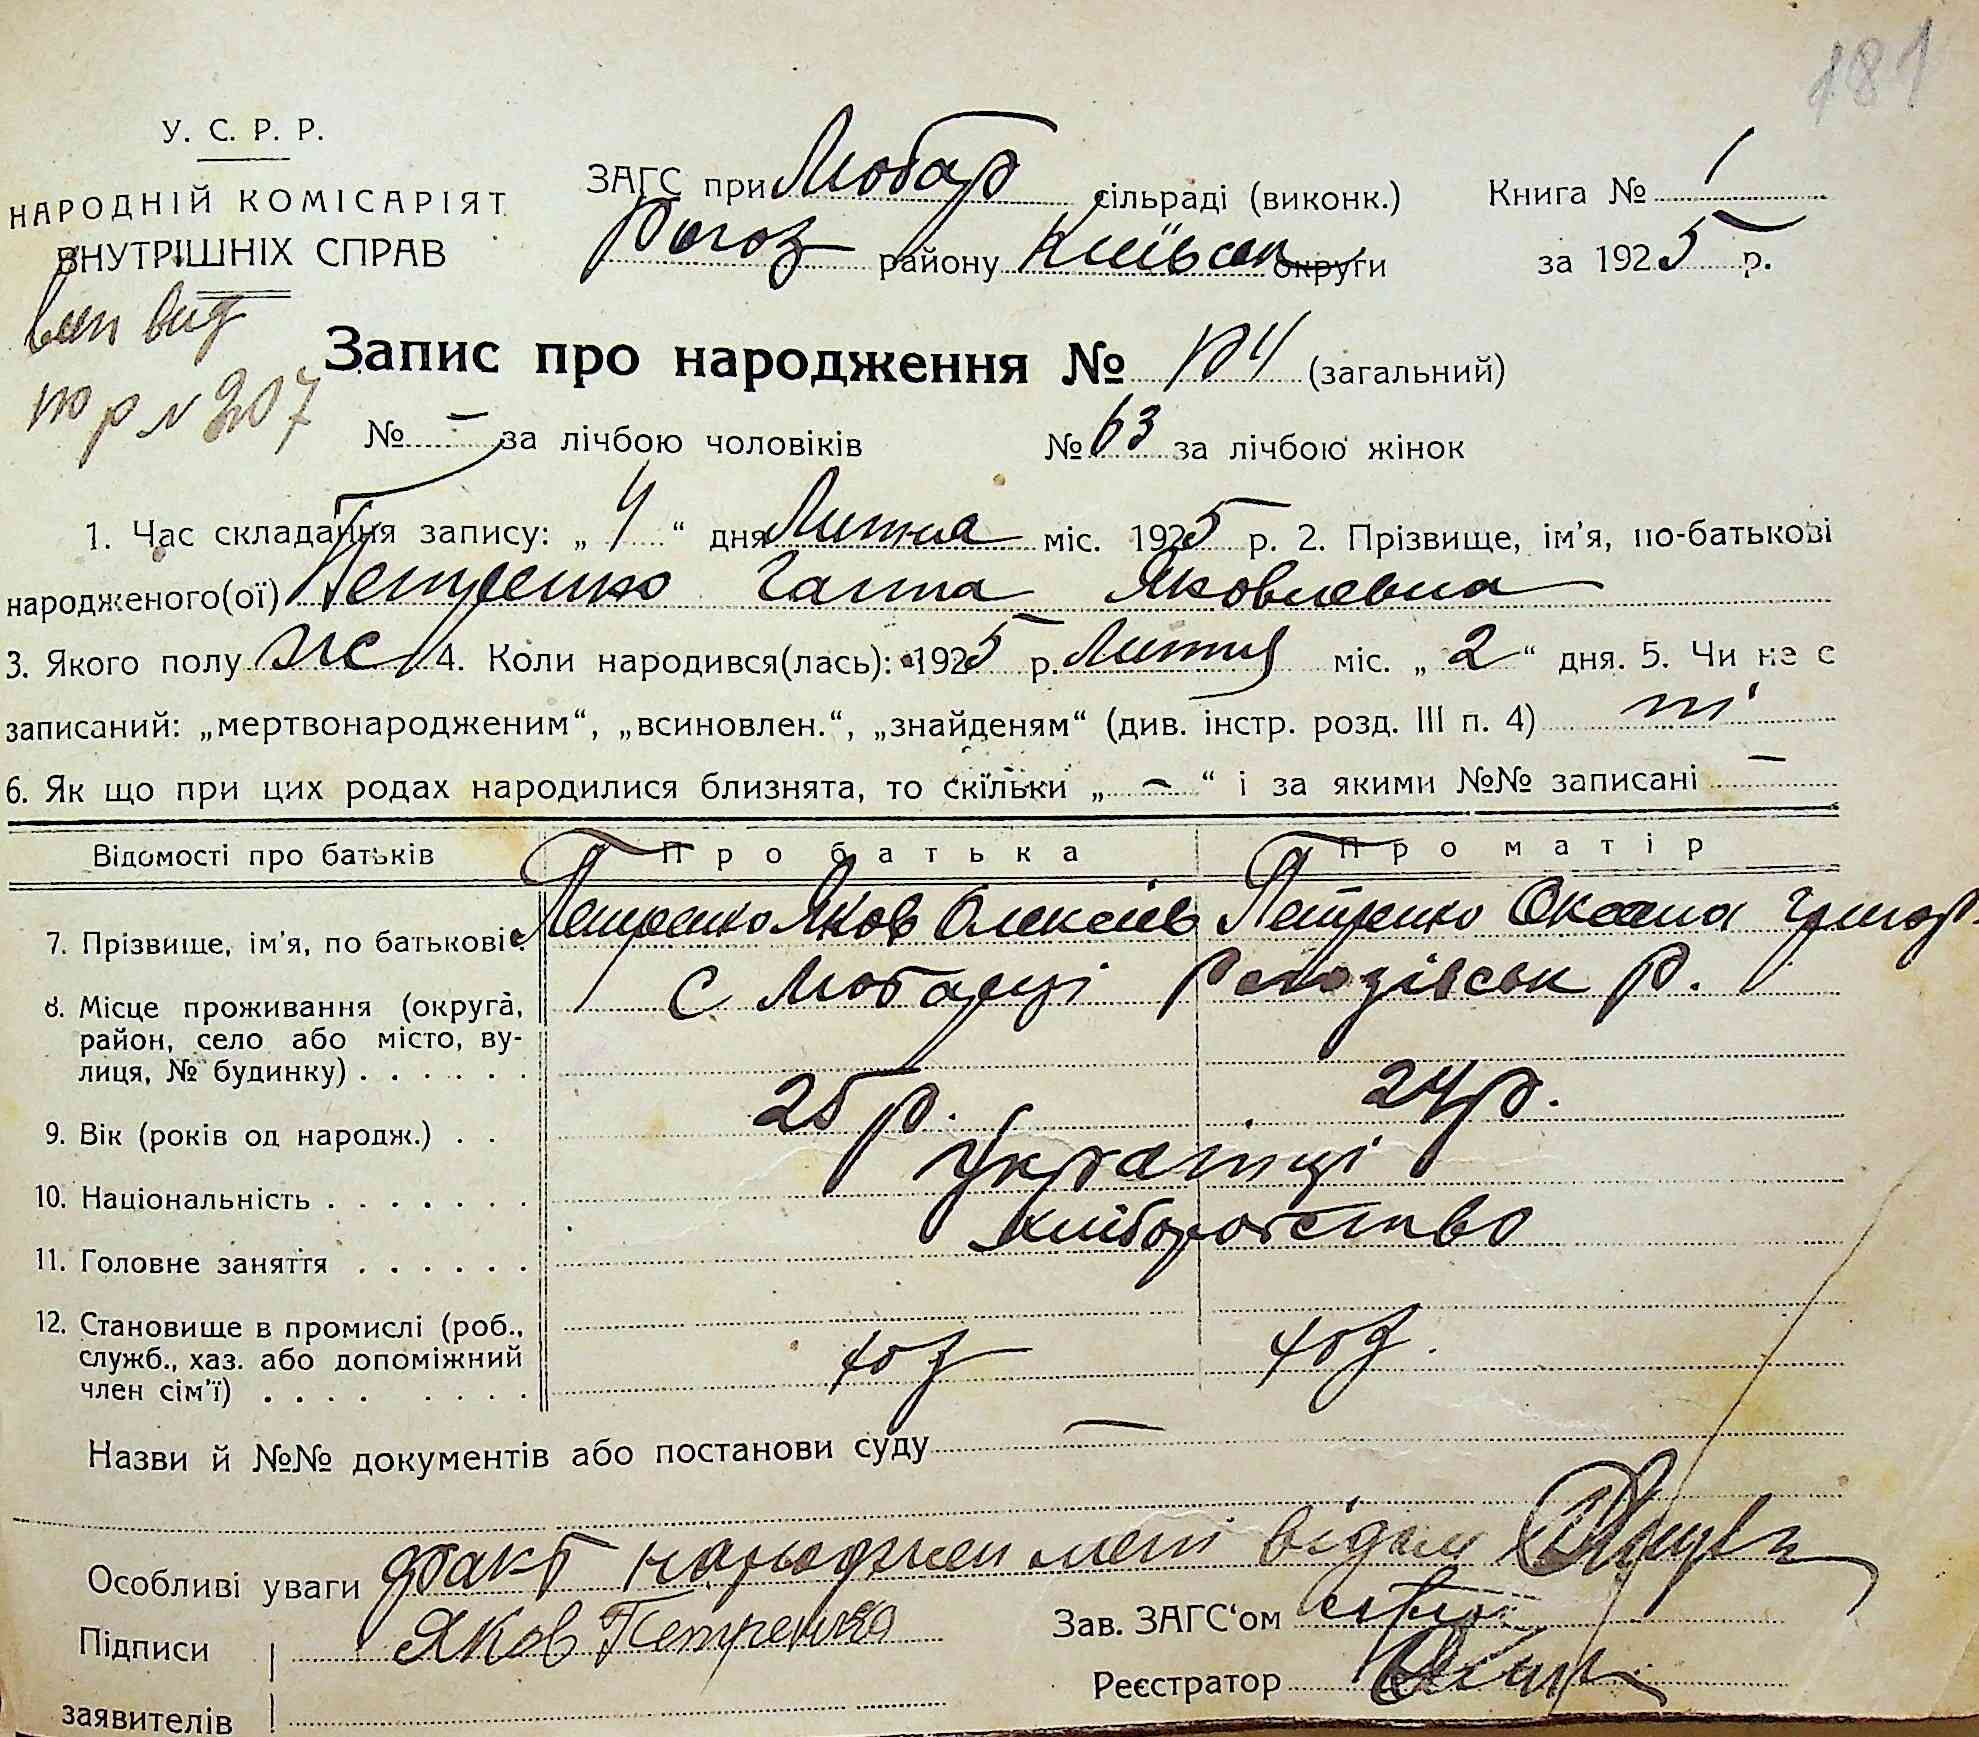 181
У. С. Р. Р.
НАРОДНІЙ КОМІСАРІЯТ
ВНУТРІШНІХ СПРАВ
ЗАГС при Любар сільраді (виконк.)
Рогоз району Київськ округи
Книга № 1
за 1925 р.
вип вид
№ 207
Запис про народження № 124 (загальний)
№ – за лічбою чоловіків № 63 за лічбою жінок
1. Час складання запису: „ 4 “ дня Липня міс. 1925 р. 2. Прізвище, ім'я, по-батькові
народженого(ої) Петренко Ганна Яковлевна
3. Якого полу жс 4. Коли народився(лась): 1925 р. Липня міс. „ 2 “ дня. 5. Чи не є
записаний: „мертвонародженим“, „всиновлен.“, „знайденям“ (див. інстр. розд. III п. 4) ні
6. Як що при цих родах народилися близнята, то скільки „ – “ і за якими №№ записані –
Відомості про батьків Про батька Про матір
7. Прізвище, ім'я, по батькові Петренко Яков Олексіев Петренко Оксана Григор.
8. Місце проживання (округа, район, село або місто, вулиця, № будинку) . . . . . . с Любарці Рогозівськ р.
9. Вік (років од народж.) . . 25 р. 24 р.
10. Національність . . . . . . . Українці
11. Головне заняття . . . . . . хліборобство
12. Становище в промислі (роб., служб., хаз. або допоміжний член сім'ї) . . . . . . . . хоз хоз.
Назви й №№ документів або постанови суду –
Особливі уваги факт народжен мені відом
Підписи Яков Петренко
заявителів
Зав. ЗАГС'ом
Реєстратор